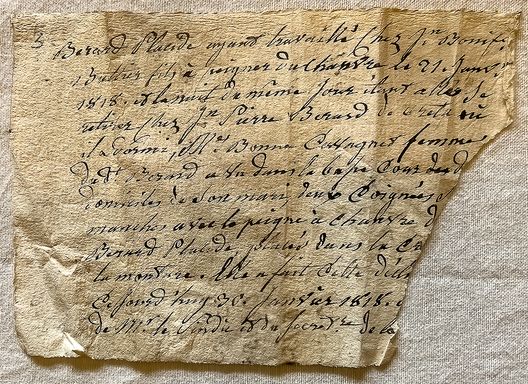 3 Berard Placide ayant travaillé chez Jn Bonif
Buttier fils à peigner du chanvre le 21 Janv
1818. et la nuit du même jour étant allé se
retirer chez Jn Pierre Berard de où
il a dormi, Me Bonne Cavagnet femme
du dt Berard a vu dans la basse Cour de
domiciles de son mari, deux Coignés
manches avec le peigne à chanvre d
Berard Placide placés dans la
la montrée. Elle a fait cette décl
Cejourd'huy 30 Janvier 1818.
de Mr le Sindic et du Secretre de la